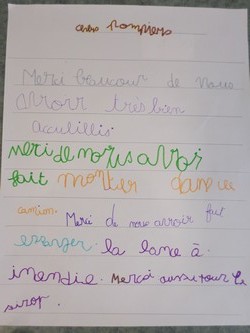 chers Pompiers
Merci beaucour de nous
avoir très bien
acuillis.
Merci de nous avoi
fait monter dans le
camion. Merci de nous avoir fait
essayer la lance à
incendie. Merci aussi pour le
sirop.